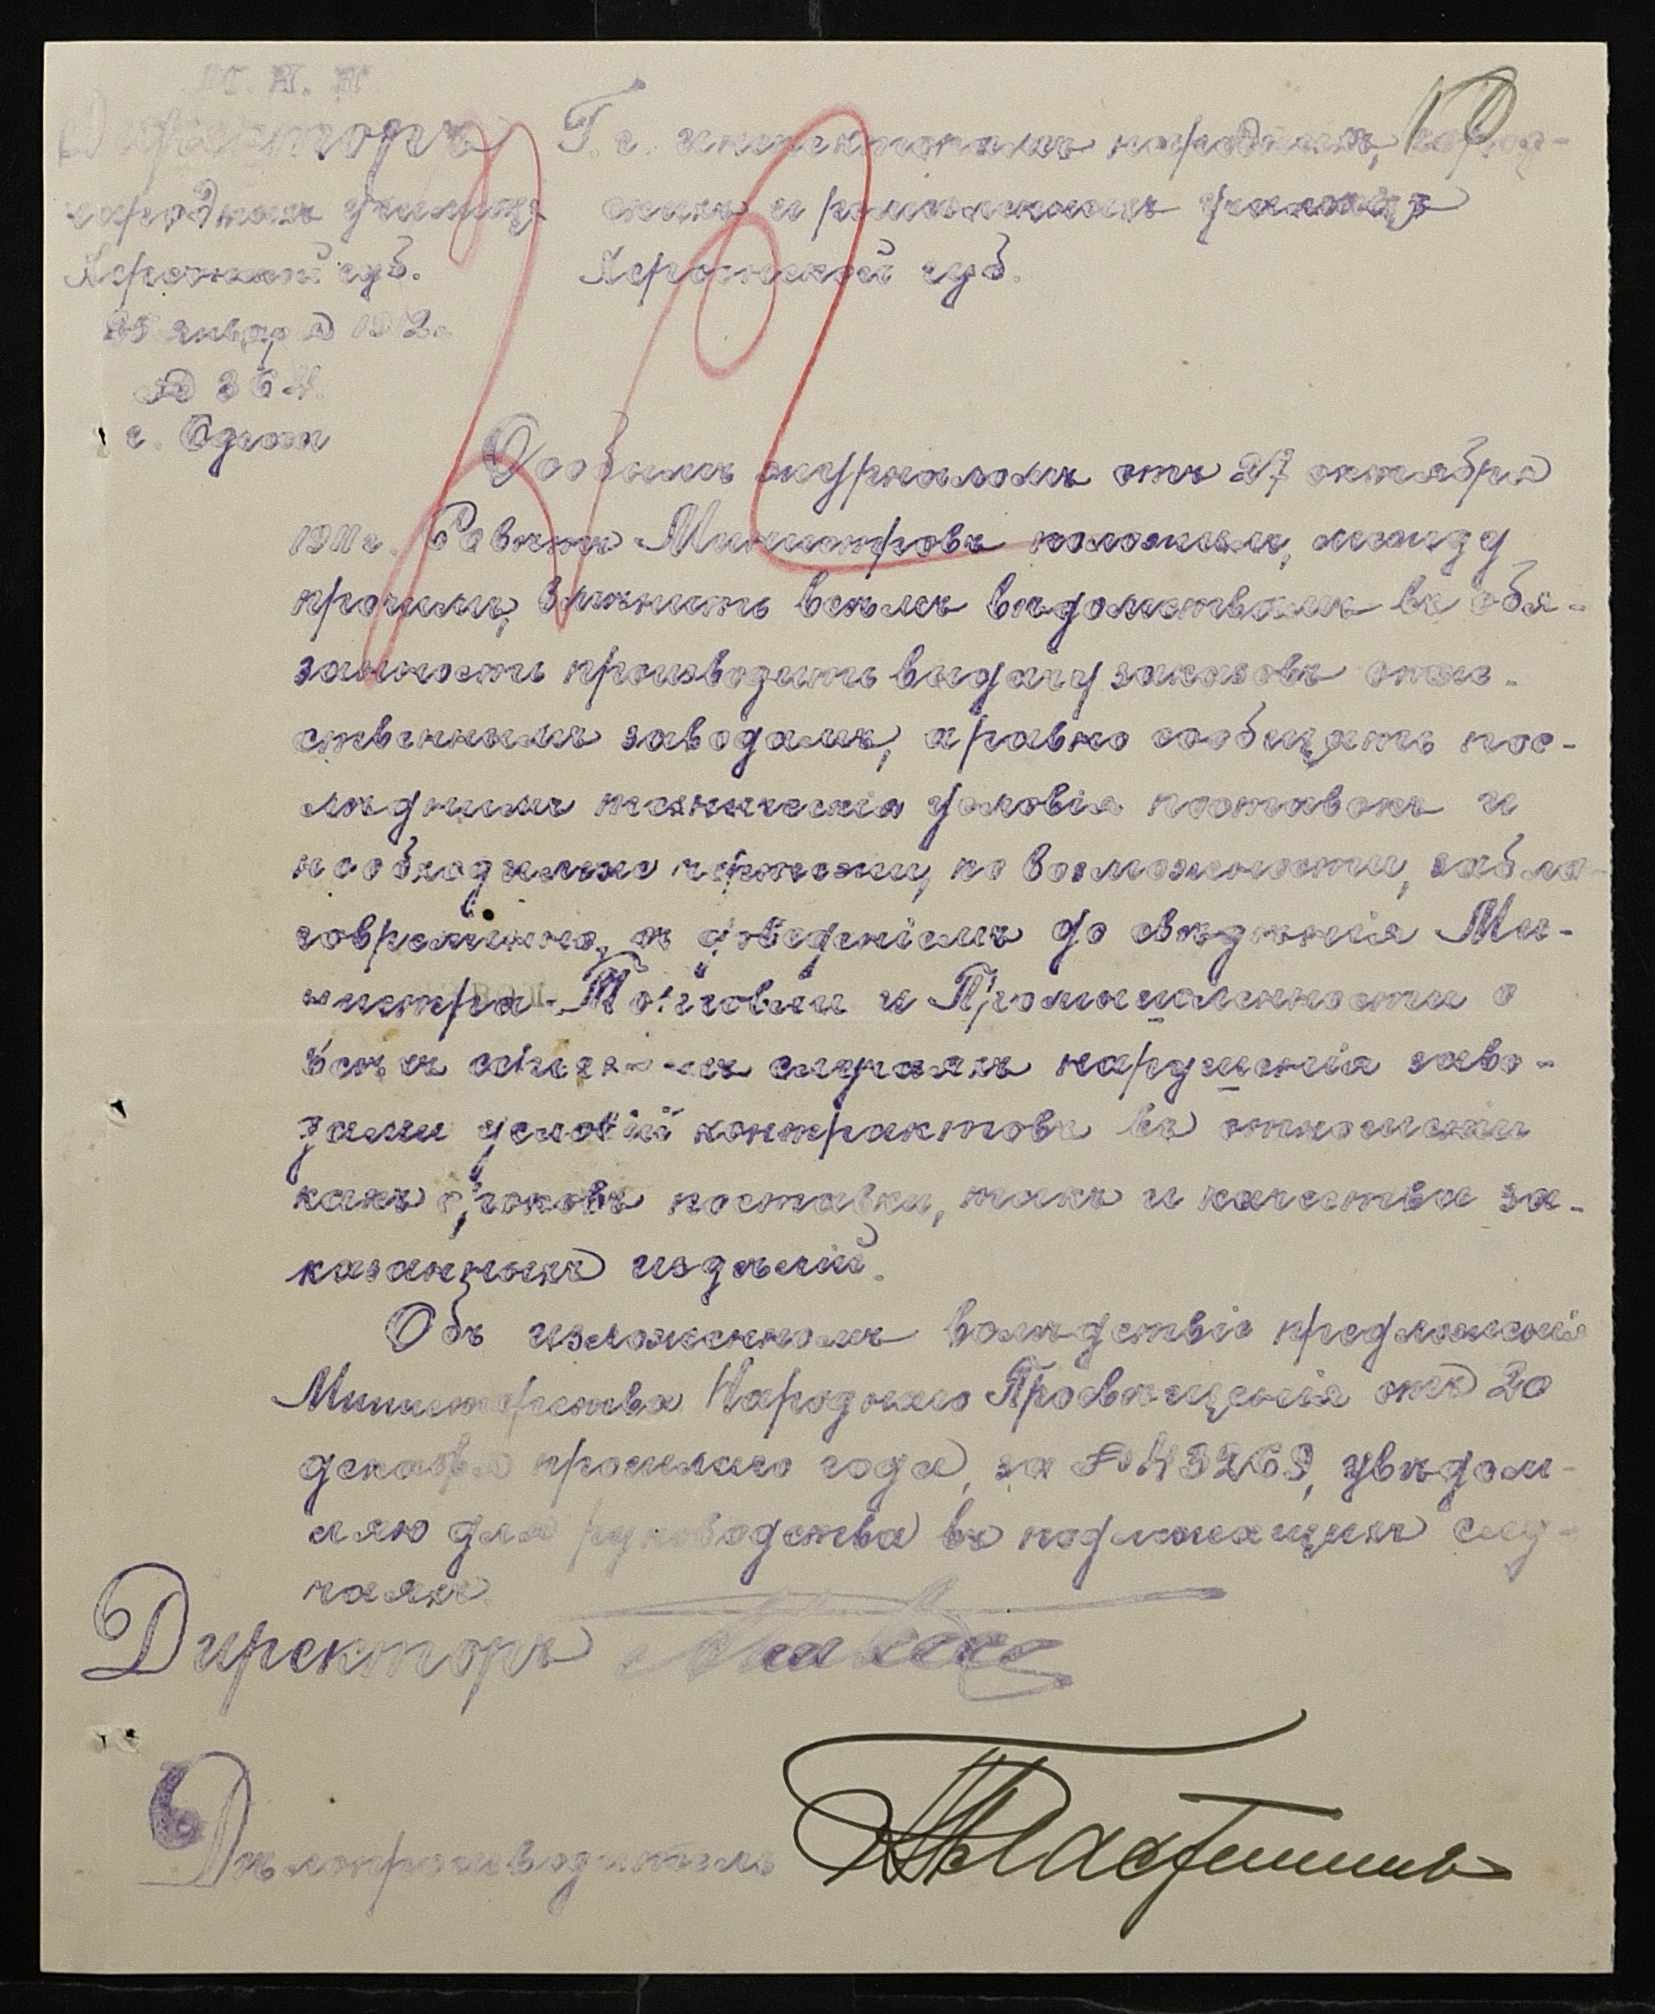 М. Н. П.
Директоръ
народныхъ училищъ
Херсонской губ.
25 января 1912 г.
№ 364.
г. Одесса
Г. г. инспекторамъ народныхъ, город-
скихъ и ремесленныхъ училищъ
Херсонской губ.
Особымъ журналомъ отъ 27 октября
1911 г. Совѣтъ Министровъ положилъ, между
прочимъ, вмѣнить всѣмъ вѣдомствамъ въ обя-
занность производить выдачу заказовъ отече-
ственнымъ заводамъ, а равно сообщать пос-
лѣднимъ техническія условія поставокъ и
необходимые чертежи, по возможности, забла-
говременно, съ доведеніемъ до свѣдѣнія Ми-
нистра Торговли и Промышленности о
всѣхъ случаяхъ нарушенія заво-
дами условій контрактовъ въ отношеніи
какъ сроковъ поставки, такъ и качества за-
казанныхъ издѣлій.
Объ изложенномъ вслѣдствіе предложенія
Министерства Народнаго Просвѣщенія отъ 20
декабря прошлаго года, за № 43269, увѣдом-
ляю для руководства въ подлежащихъ слу-
чаяхъ.
Директоръ
Дѣлопроизводитель